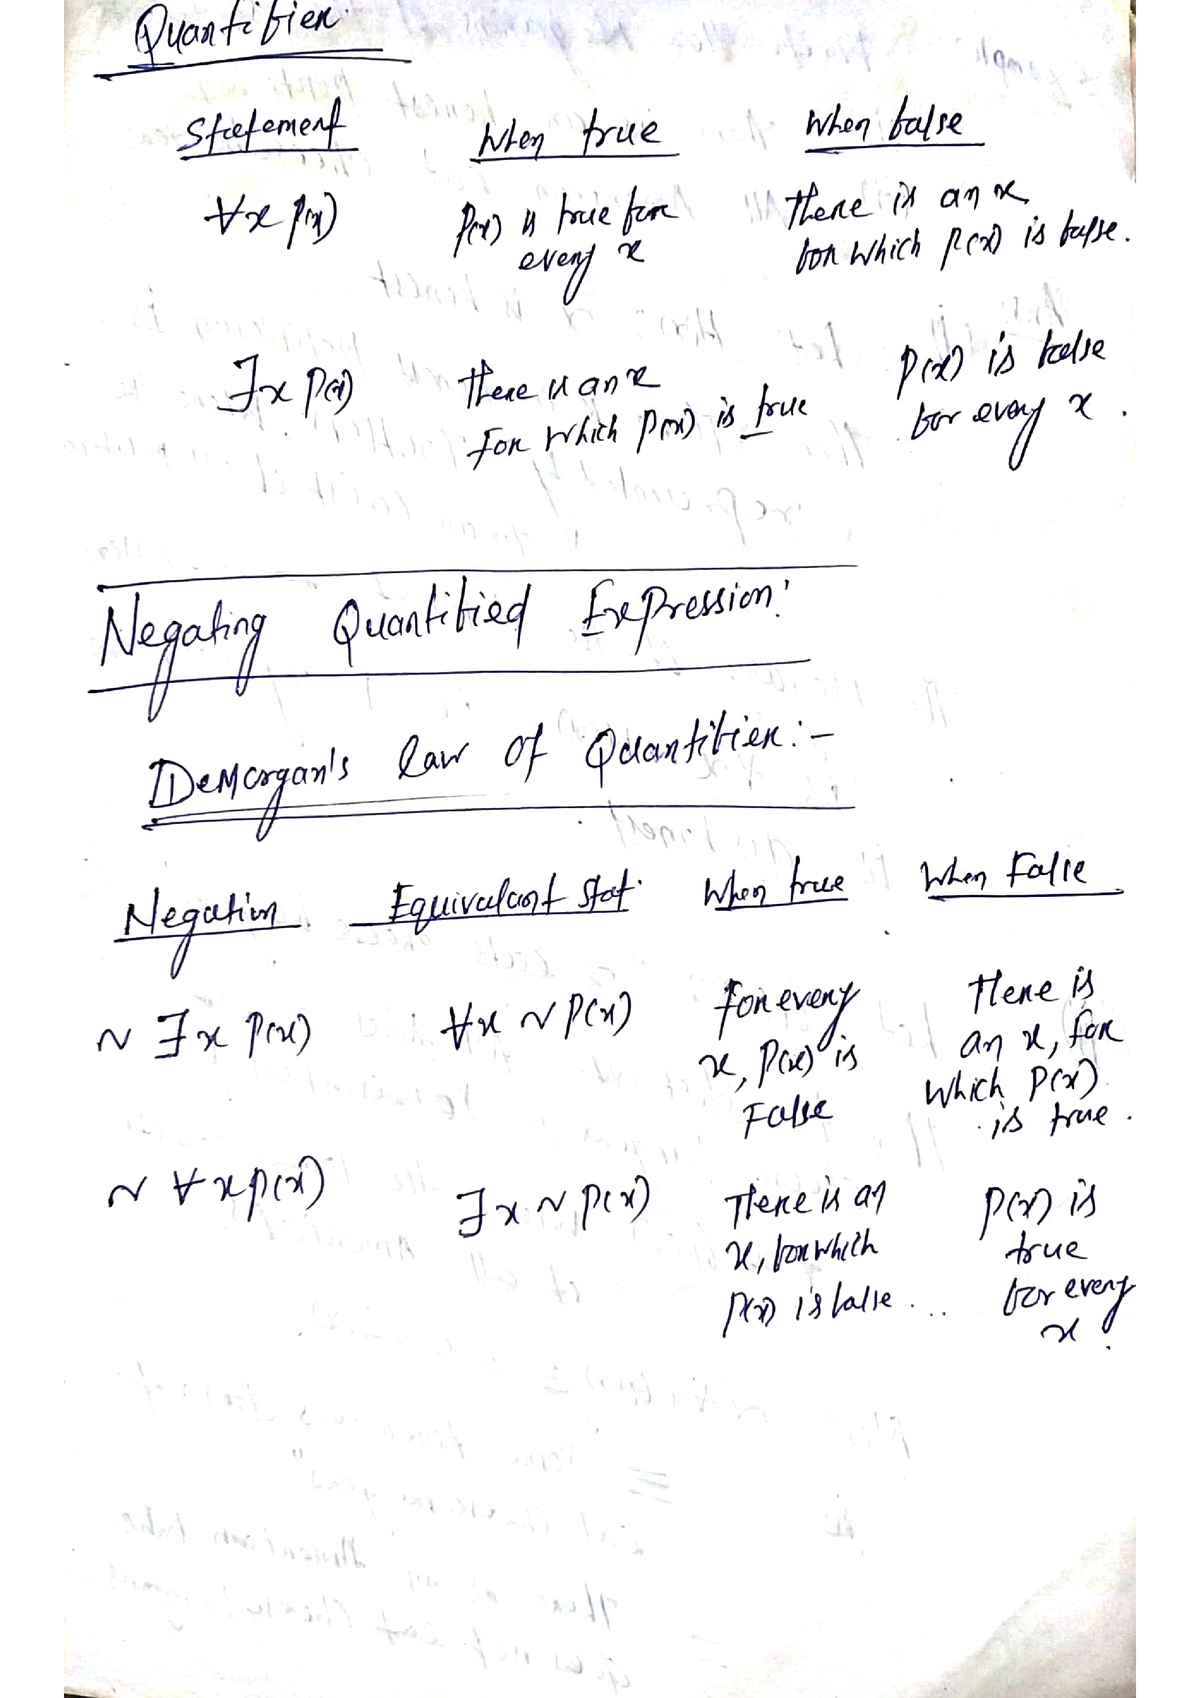 Quantifier
Statement When true When false
∀x P(x) P(x) is true for every x there is an x, for which P(x) is false.
∃x P(x) there is an x For which P(x) is true P(x) is false for every x.
Negating Quantified Expression:
DeMorgan's law of Quantifier:-
Negation Equivalant Stat. When true When False
~ ∃x P(x) ∀x ~P(x) For every x, P(x) is False There is an x, for which P(x) is true.
~ ∀x P(x) ∃x ~P(x) There is an x, for which P(x) is false... P(x) is true for every x.